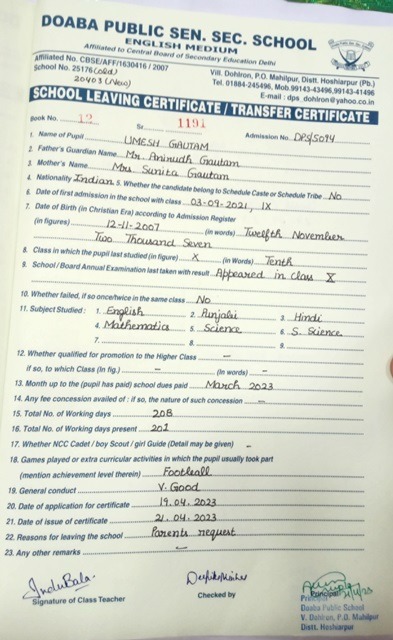 DOABA PUBLIC SEN. SEC. SCHOOL
ENGLISH MEDIUM
Affiliated to Central Board of Secondary Education Delhi
Affiliated No. CBSE/AFF/1630416 / 2007
School No. 25176 (old)
20403 (New)
Vill. Dohlron, P.O. Mahilpur, Distt. Hoshiarpur (Pb.)
Tel. 01884-245496, Mob.99143-43496,99143-41496
E-mail : dps_dohlron@yahoo.co.in
SCHOOL LEAVING CERTIFICATE / TRANSFER CERTIFICATE
Book No. 12 Sr. 1191 Admission No. DPS/5094
1. Name of Pupil UMESH GAUTAM
2. Father's Guardian Name Mr. Aninudh Gautam
3. Mother's Name Mrs Sunita Gautam
4. Nationality Indian 5. Whether the candidate belong to Schedule Caste or Schedule Tribe No
6. Date of first admission in the school with class 03-09-2021, IX
7. Date of Birth (in Christian Era) according to Admission Register
(in figures) 12-11-2007 (in words) Twelfth November
Two Thousand Seven
8. Class in which the pupil last studied (in figure) X (in Words) Tenth
9. School / Board Annual Examination last taken with result Appeared in class X
10. Whether failed, if so once/twice in the same class No
11. Subject Studied : 1. English 2. Punjabi 3. Hindi
4. Mathematics 5. Science 6. S. Science
7. 8. 9.
12. Whether qualified for promotion to the Higher Class –
if so, to which Class (in fig.) – (in words) –
13. Month up to the (pupil has paid) school dues paid March 2023
14. Any fee concession availed of : if so, the nature of such concession –
15. Total No. of Working days 208
16. Total No. of Working days present 201
17. Whether NCC Cadet / boy Scout / girl Guide (Detail may be given) –
18. Games played or extra curricular activities in which the pupil usually took part
(mention achievement level therein) Football
19. General conduct V. Good
20. Date of application for certificate 19.04.2023
21. Date of issue of certificate 21.04.2023
22. Reasons for leaving the school Parents request
23. Any other remarks –
InduBala.
Signature of Class Teacher
Checked by
Principal
Doaba Public School
V. Dohlron, P.O. Mahilpur
Distt. Hoshiarpur